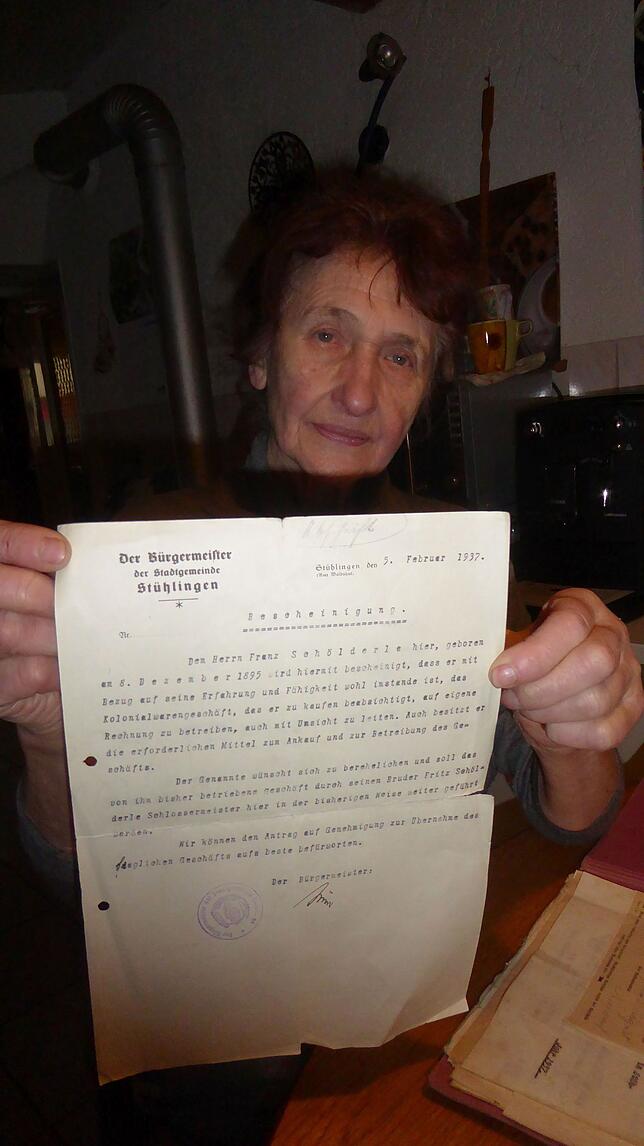 Der Bürgermeister
der Stadtgemeinde
Stühlingen
Stühlingen den 5. Februar 1937.
(Amt Waldshut)
Bescheinigung.
Nr.
Dem Herrn Franz Schölderle hier, geboren
am 8. Dezember 1895 wird hiermit bescheinigt, dass er mit
Bezug auf seine Erfahrung und Fähigkeit wohl instande ist, das
Kolonialwarengeschäft, das er zu kaufen beabsichtigt, auf eigene
Rechnung zu betreiben, auch mit Umsicht zu leiten. Auch besitzt er
die erforderlichen Mittel zum Ankauf und zur Betreibung des Ge-
schäfts.
Der Genannte wünscht sich zu verehelichen und soll das
von ihm bisher betriebene Geschäft durch seinen Bruder Fritz Schöl-
derle Schlossermeister hier in der bisherigen Weise weiter geführt
werden.
Wir können den Antrag auf Genehmigung zur Übernahme des
fraglichen Geschäfts aufs beste befürworten.
Der Bürgermeister: